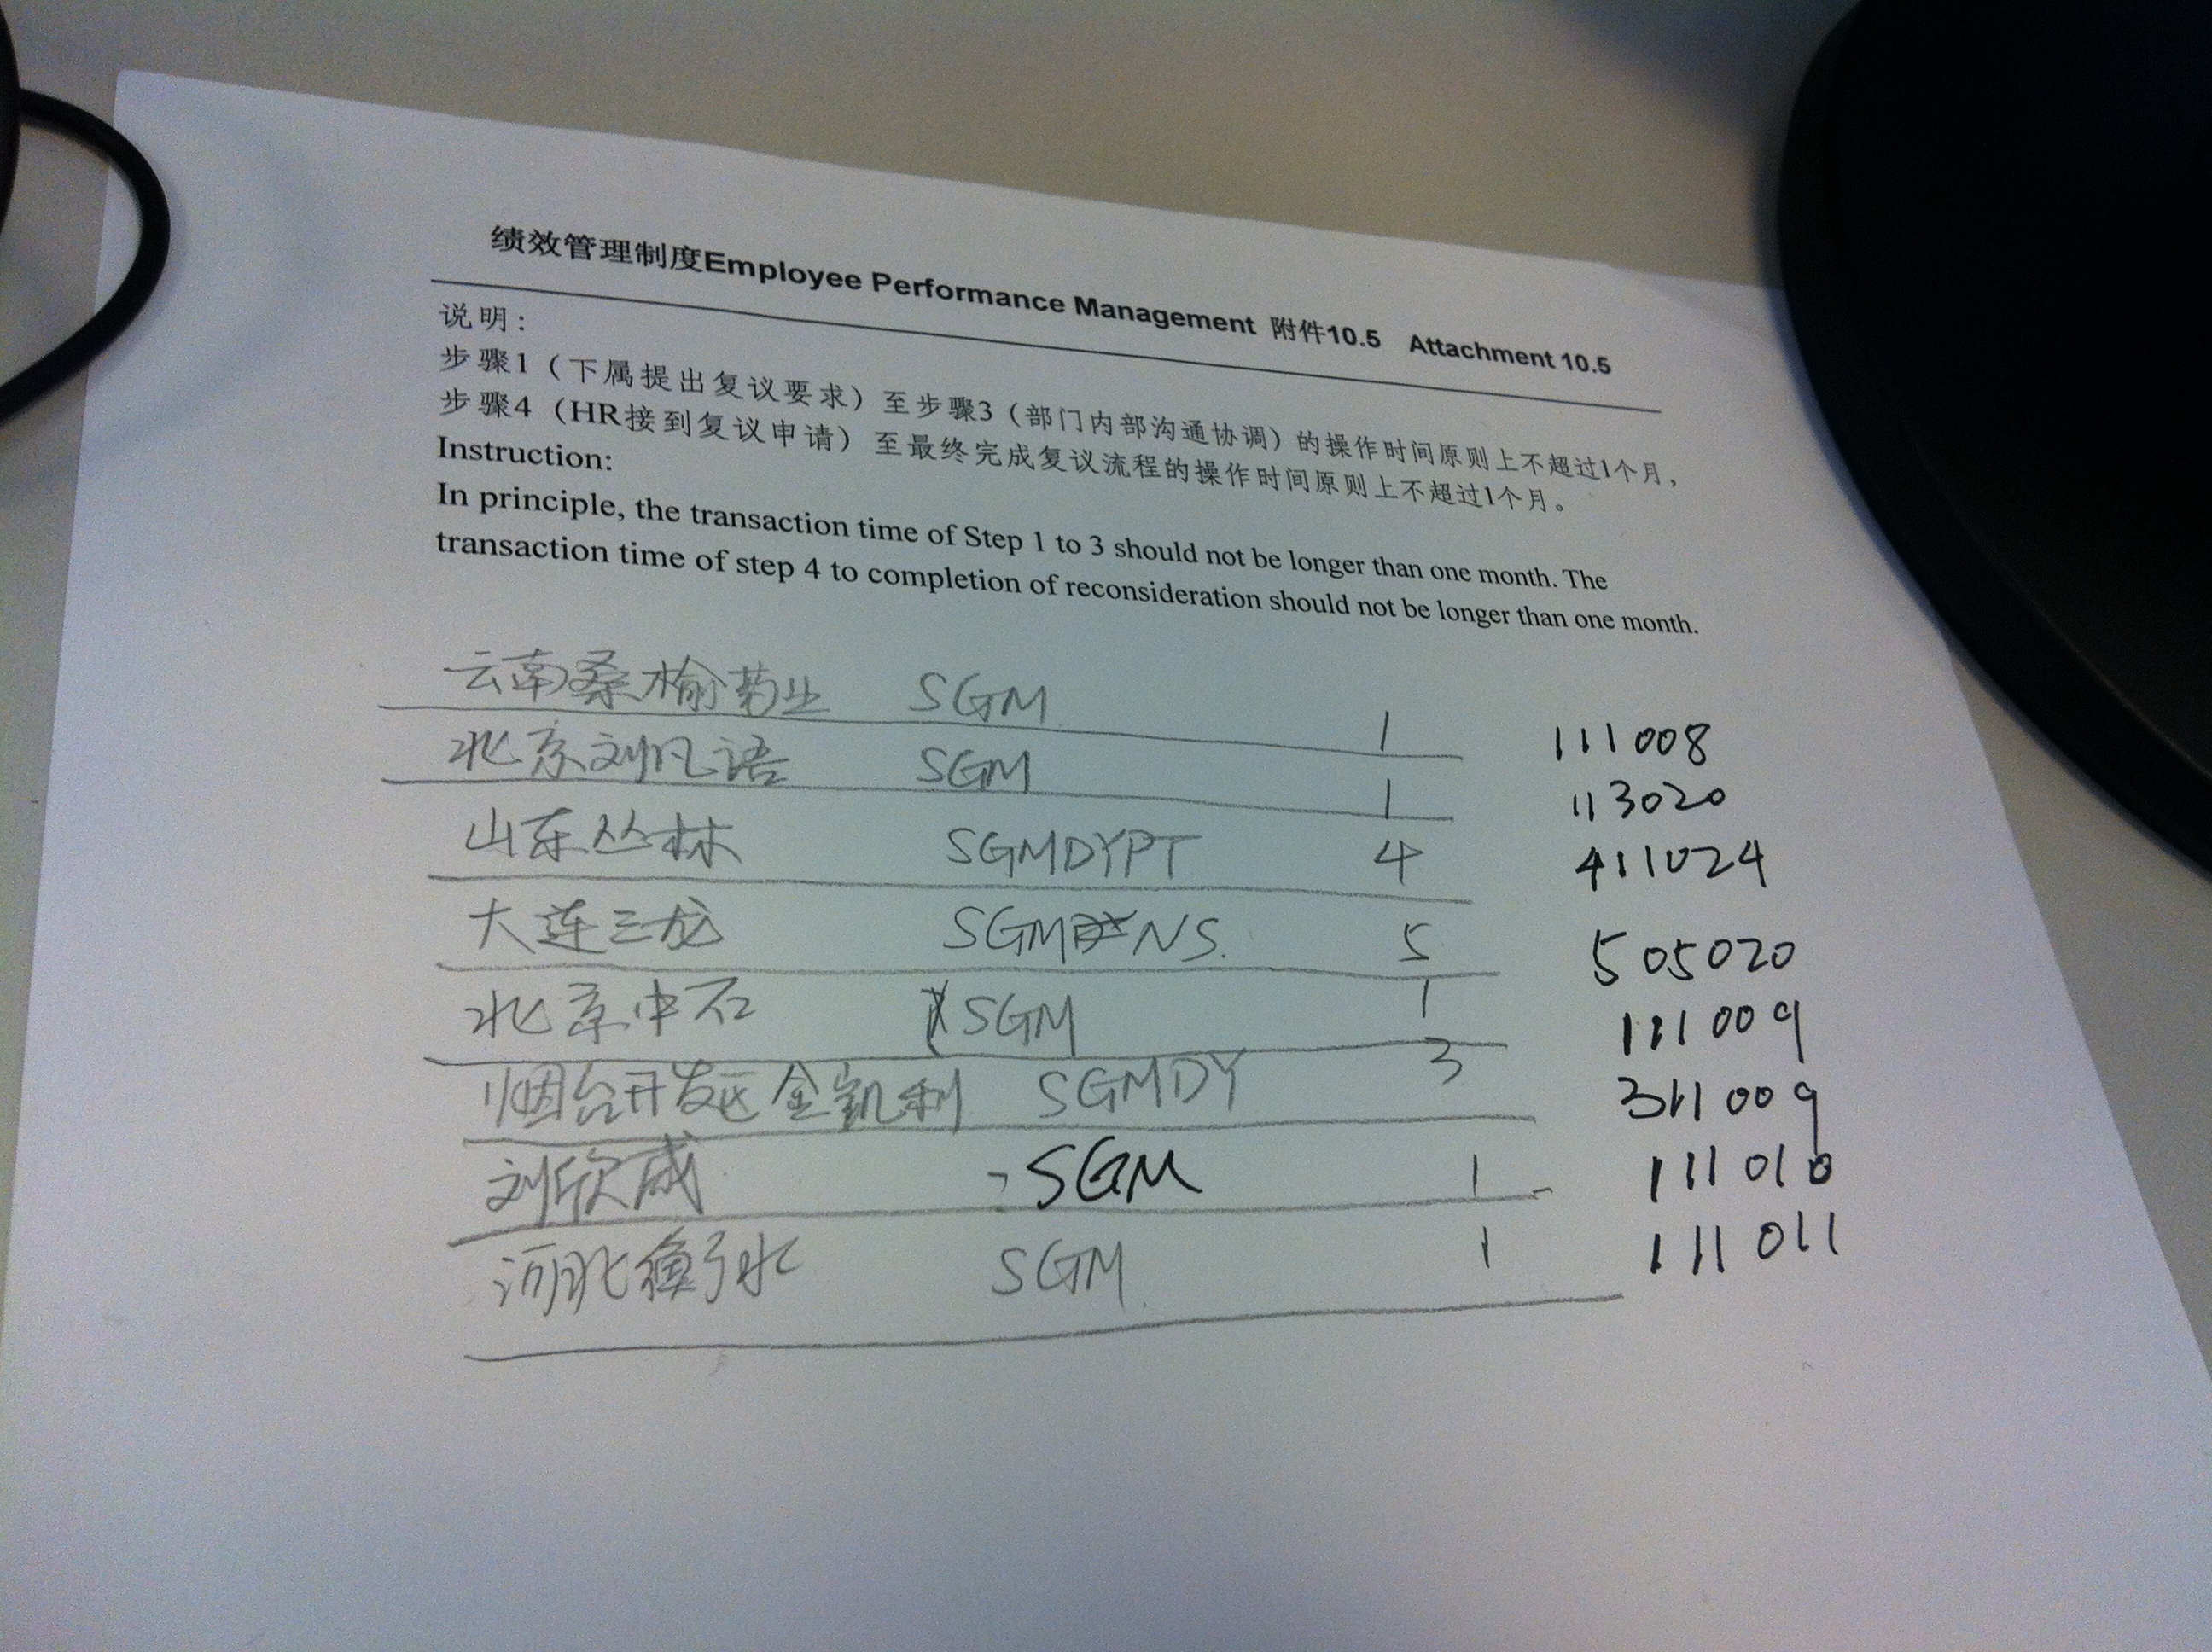 绩效管理制度Employee Performance Management 附件10.5 Attachment 10.5
说明：
步骤1（下属提出复议要求）至步骤3（部门内部沟通协调）的操作时间原则上不超过1个月，
步骤4（HR接到复议申请）至最终完成复议流程的操作时间原则上不超过1个月。
Instruction:
In principle, the transaction time of Step 1 to 3 should not be longer than one month. The
transaction time of step 4 to completion of reconsideration should not be longer than one month.
云南桑榆药业 SGM 1 111008
北京 SGM 1 113020
山东丛林 SGMDYPT 4 411024
大连三龙 SGM NS. 5 505020
北京中石 SGM 1 111009
烟台开发区金 SGMDY 3 311009
SGM 1 111010
SGM 1 111011